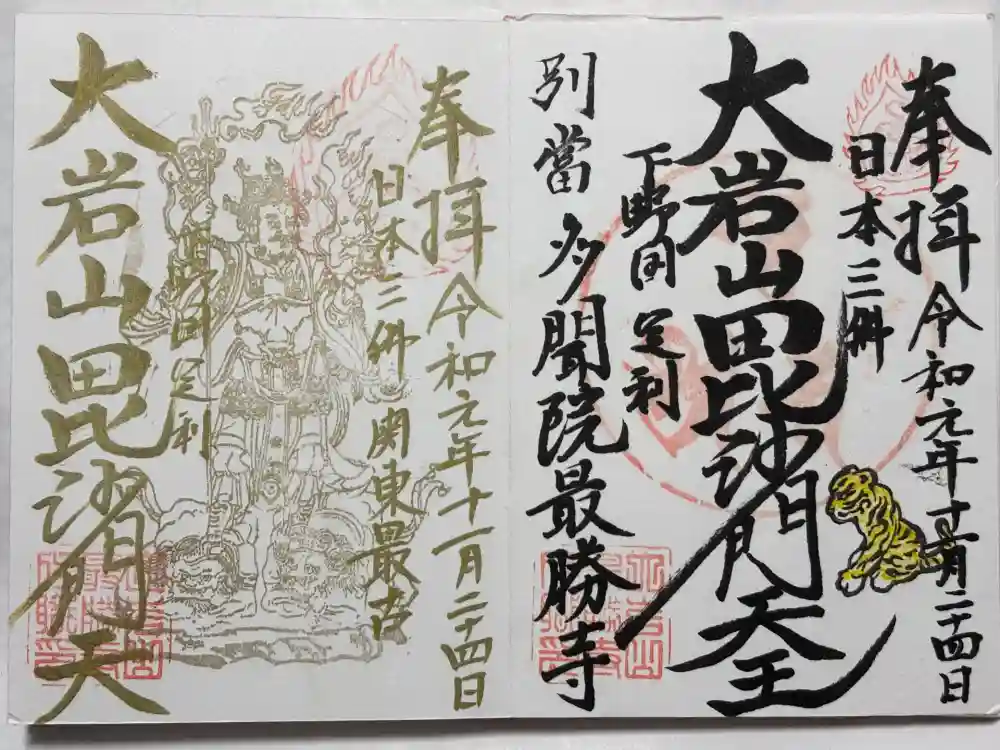 奉拝 令和元年十一月二十四日
日本三佛
大岩山毘沙門天王
下野国 足利
別當 多聞院最勝寺
奉拝 令和元年十一月二十四日
日本三佛 関東最古
下野国足利
大岩山毘沙門天